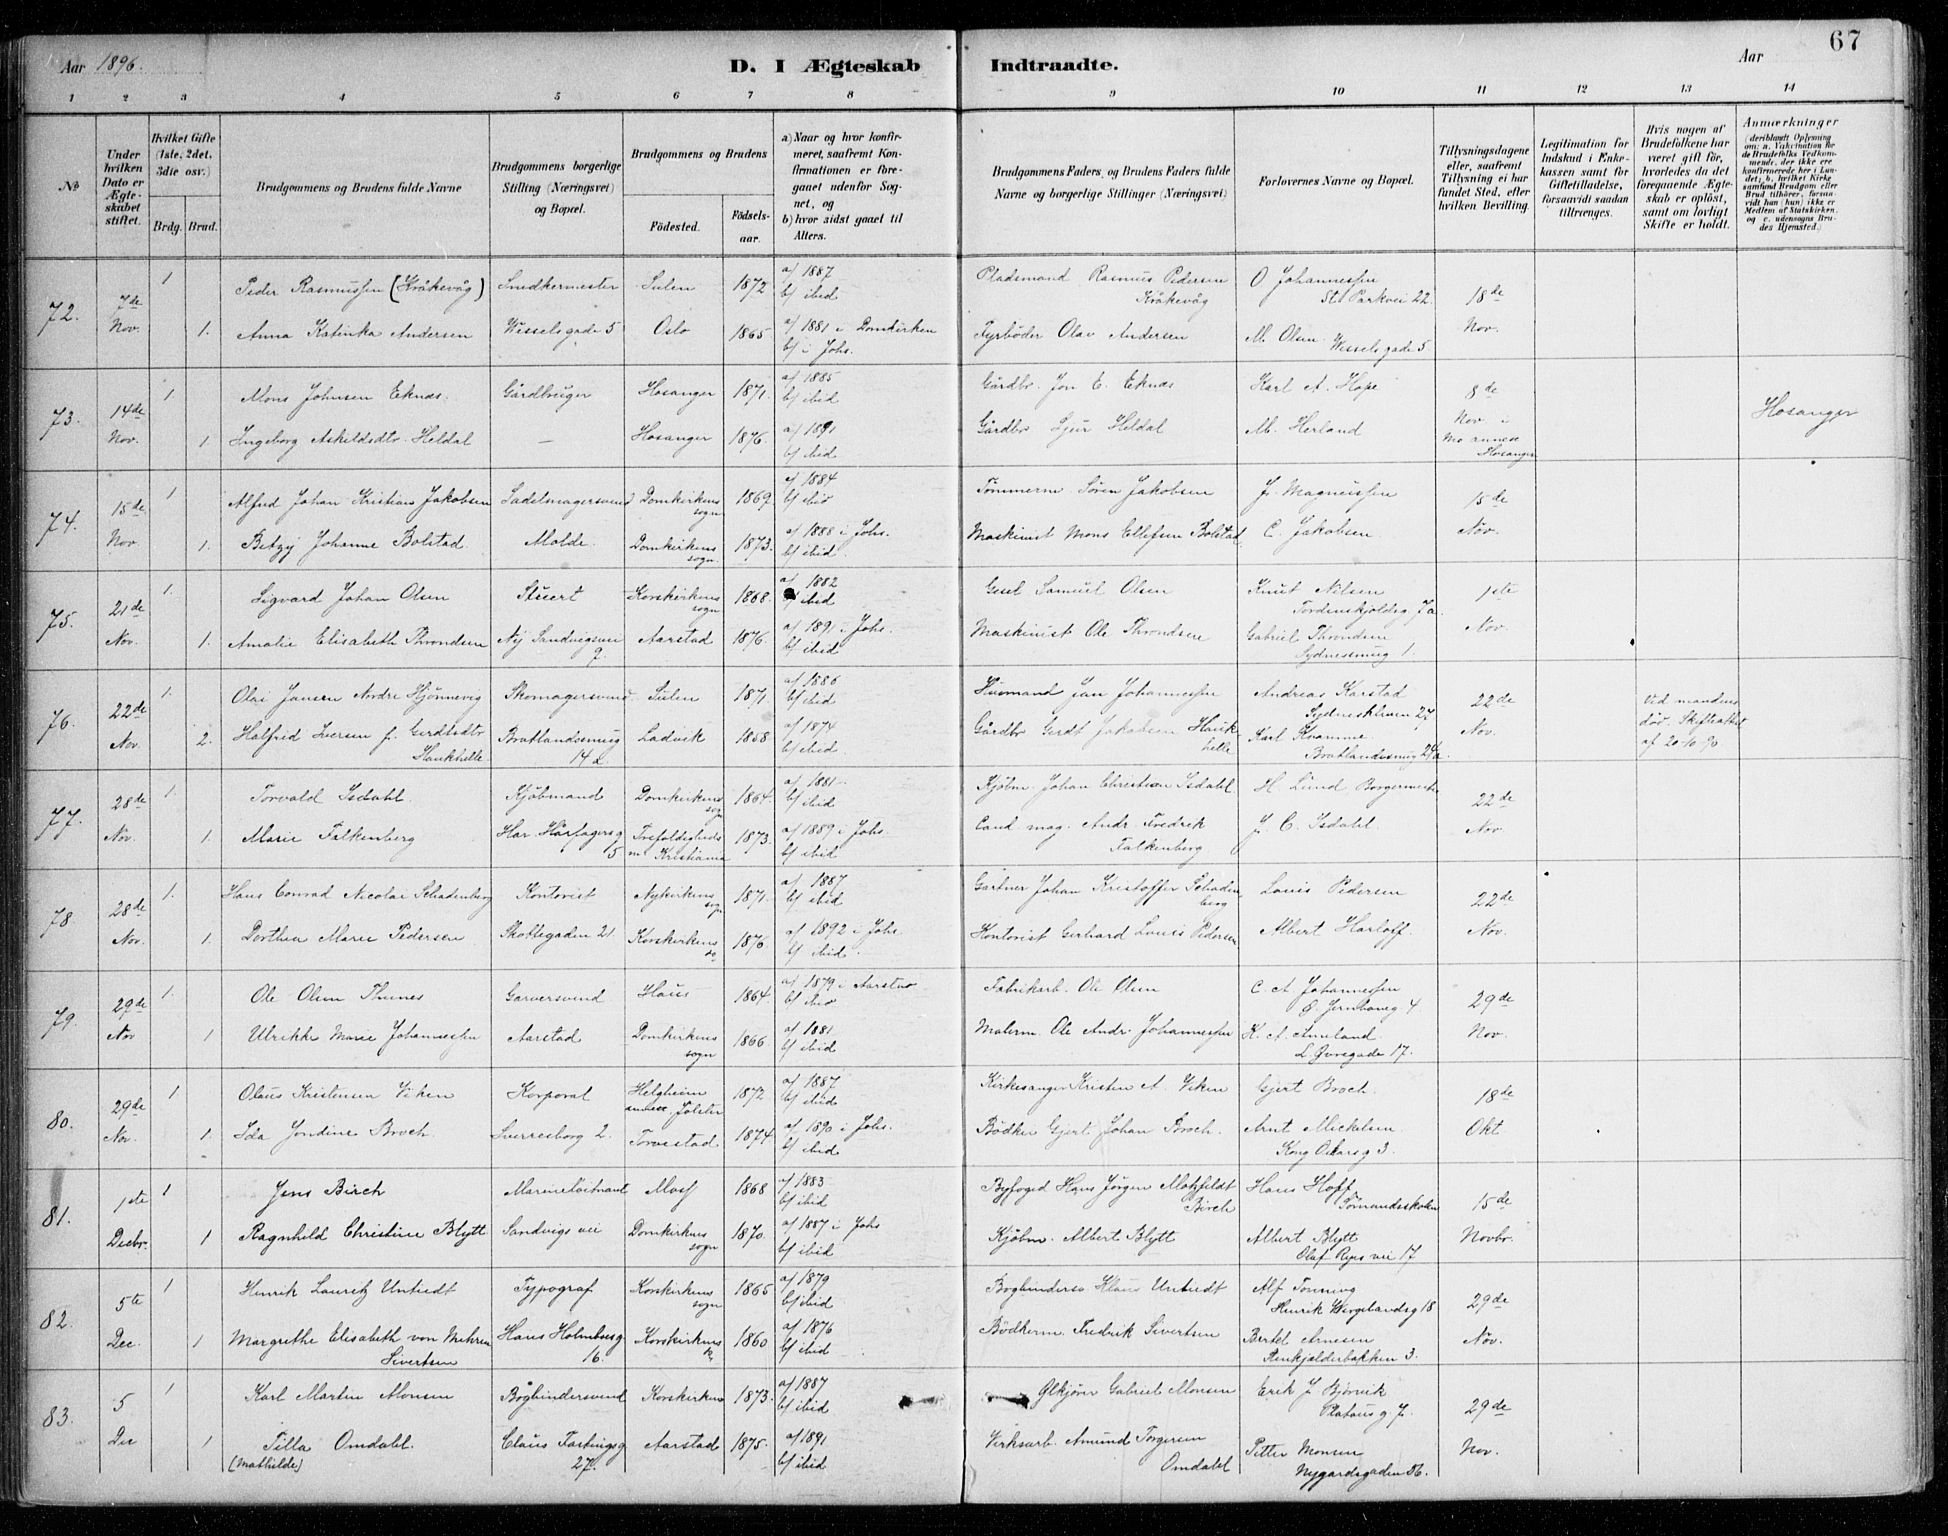 Aar 1896. D. I Ægteskab Indtraadte. Aar 67
1 2 3 4 5 6 7 8 9 10 11 12 13 14
№
Under hvilken Dato er Ægteskabet stiftet.
Hvilket Gifte (1ste, 2det, 3die osv.)
Brdg. Brud.
Brudgommens og Brudens fulde Navne
Brudgommens borgerlige Stilling (Næringsvei) og Bopæl.
Brudgommens og Brudens
Fødested. Fødselsaar.
a) Naar og hvor konfirmeret, saafremt Konfirmationen er foregaaet udenfor Sognet, og
b) hvor sidst gaaet til Alters.
Brudgommens Faders, og Brudens Faders fulde Navne og borgerlige Stillinger (Næringsvei)
Forlovernes Navne og Bopæl.
Tillysningsdagene eller, saafremt Tillysning ei har fundet Sted, efter hvilken Bevilling.
Legitimation for Indskud i Enkekassen samt for Giftetilladelse, forsaavidt saadan tiltrænges.
Hvis nogen af Brudefolkene har været gift før, hvorledes da det foregaaende Ægteskab er opløst, samt om lovligt Skifte er holdt.
Anmærkninger (deriblandt Oplysning om: a. Vakcination for de Brudefolks Vedkommende, der ikke ere konfirmerede her i Landet; b. hvilket Kirkesamfund Brudgom eller Brud tilhører, forsaavidt han (hun) ikke er Medlem af Statskirken. og c. udensogns Brudes Hjemsted.)
72. 7de 1 Peder Rasmussen (Kråkevåg) Snedkermester Sulen 1872 a/ 1887 b/ ibid Pladsmand Rasmus Pedersen Kråkevåg O Johannessen St. Parkvei 22. 18de
Nov. 1. Anna Katinka Andersen Wesselsgade 5 Oslo 1865 a/ 1881 i Domkirken b/ i Johs. Fyrbøder Olav Andersen M. Olsen Wesselsgade 5 Nov.
73. 14de 1 Mons Johnsen Eknæs. Gårdbruger Hosanger 1871. a/ 1885 b/ ibid Gårdbr. Jon E. Eknæs Karl A. Hope 8de Hosanger
Nov. 1 Ingeborg Askildsdtr. Heldal — Hosanger 1876. a/ 1891 b/ ibid Gårdbr Sjur Heldal M. Herland Nov. i Mo annex Hosanger
74. 15de 1 Alfred Johan Kristian Jakobsen Sadelmagersvend Domkirkens sogn 1869. a/ 1884 b/ ibid Tømmerm Søren Jakobsen J. Magnussen 15de
Nov 1. Betzy Johanne Bolstad Molde. Domkirkens sogn. 1873. a/ 1888 i Johs. b/ ibid Maskinist Mons Ellefsen Bolstad C. Jakobsen Nov.
75. 21de 1. Sigvard Johan Olsen Stuert Korskirkens sogn 1868. a/ 1882 b/ ibid Gesel Samuel Olsen Knut Nilsen Tordenskjoldsg. 7a 1ste
Nov. 1. Amalie Elisabeth Throndsen Ny Sandvigsvei 9. Aarstad 1876. a/ 1891 i Johs. b/ ibid Maskinist Ole Throndsen Gabriel Throndsen Sydnessmug 1. Nov.
76. 22de 1. Olai Jansen Nordre Hjønnevig Skomagersvend Sulen 1871. a/ 1886 b/ ibid Husmand Jan Johannessen Andreas Karstad Sydneskleven 27 22de Ved mandens død. Skifteattest af 20-10-90
Nov. 2. Halfrid Iversen f. Gerdtsdtr Haukhelle. Bratlandssmug 14 a Ladvik 1858 a/ 1874 b/ ibid. Gårdbr Gerdt Jakobsen Haukhelle Karl Kvamme Bratlandssmug 24a. Nov.
77. 28de 1. Torvald Isdahl. Kjøbmand Domkirkens sogn 1864. a/ 1881. b/ ibid. Kjøbm. Johan Christian Isdahl H Lund Borgermester 22de
Nov. 1. Marie Falkenberg Har. Hårfagersg 5 Trefoldigheds mt Kristiania 1873. a/ 1889 i Johs b/ ibid Cand mag. Andr. Fredrik Falkenberg J. C. Isdahl Nov.
78. 28de 1. Hans Conrad Nicolai Schadenberg Kontorist Nykirkens sogn 1871. a/ 1887 b/ ibid. Gartner Johan Kristoffer Schadenberg Louis Pedersen 22de
Nov. 1. Dorthea Marie Pedersen Skottegaden 21 Korskirkens do 1876. a/ 1892 i Johs. b/ ibid. Kontorist Gerhard Louis Pedersen Albert Harloff. Nov.
79. 29de 1. Ole Olsen Thunes Garversvend Haus 1864. a/ 1879 i Aarstad b/ ibid Fabrikarb. Ole Olsen C. A. Johannessen Ø. Jernbaneg 4 29de
Nov 1 Ulrikke Marie Johannessen Aarstad Domkirkens sogn 1866. a/ 1881 b/ ibid Malerm. Ole Andr. Johannessen K. A. Anniland. L. Øvregade 17. Nov.
80. 29de 1 Olaus Kristensen Viken Korporal Helgheim annex Jølster 1872 a/ 1887 b/ ibid Kirkesanger Kristen A. Viken Gjert Broch. 18de
Nov. 1. Ida Jondine Broch. Sverresborg 2. Torvestad 1874 a/ 1890 i Johs. b/ ibid Bødker Gjert Johan Broch. Arnt Mickelsen Kong Oskarsg 3. Okt
81. 1ste 1 Jens Birch Marineloitnant Moss 1868 a/ 1883 b/ ibid. Byfoged Hans Jørgen Motzfeldt Birch Hans Hoff Sømandsskolen 15de
Decbr. 1 Ragnhild Christine Blytt Sandvigsvei Domkirkens sogn 1870. a/ 1887 i Johs b/ ibid. Kjøbm. Albert Blytt Albert Blytt Olaf Ryes vei 17 Novbr.
82. 5te 1 Henrik Lauritz Untiedt Typograf Korskirkens sogn 1865 a/ 1879 b/ ibid. Bogbindersv. Klaus Untiedt Alf Tonning Henrik Wergelandsg 18 29de
Dec. 1 Margrethe Elisabeth von Mehren Sivertsen Hans Holmboesg 16. Korskirkens do 1860 a/ 1876 b/ ibid. Bødkerm. Fredrik Sivertsen Bertel Arnesen Steinkjelderbakken 3. Nov.
83. 5 1 Karl Martin Monsen Bogbindersvend Korskirkens 1873. a/ 1887 b/ ibid Ølkjører Gabriel Monsen Erik J Bjørvik Platousg 7. 29de
Dec 1 Tilla Omdahl. (Mathilde) Claus Fastingsg 27. Aarstad 1875. a/ 1891 b/ ibid Verksarb. Amund Torgersen Omdahl Petter Monsen Nygardsgaden 56. Nov.